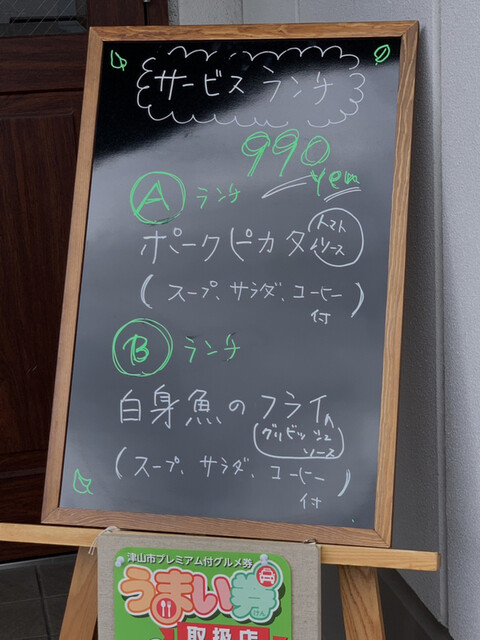 サービスランチ
990
yen
Ⓐ ランチ
ポークピカタ トマトソース
(スープ、サラダ、コーヒー付)
Ⓑ ランチ
白身魚のフライ
グリビッシュソース
(スープ、サラダ、コーヒー付)
津山市プレミアム付グルメ券
うまい券
けん
取扱店